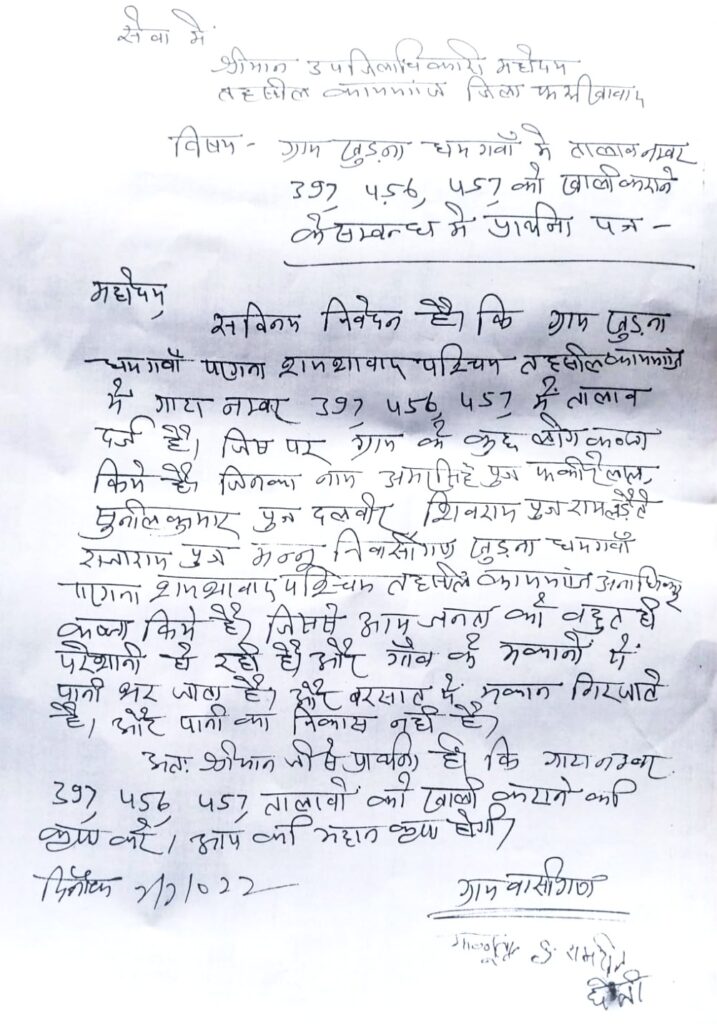 सेवा में
श्रीमान उपजिलाधिकारी महोदय
तहसील कायमगंज जिला फर्रुखाबाद
विषय - ग्राम खुड़ना धमगवाँ में तालाब नम्बर
397, 456, 457 को खाली कराने
के सम्बन्ध में प्रार्थना पत्र -
महोदय,
सविनय निवेदन है। कि ग्राम खुड़ना
धमगवाँ परगना शमशाबाद पश्चिम तहसील कायमगंज
में गाटा नम्बर 397, 456, 457 में तालाब
दर्ज है। जिस पर ग्राम के कुछ लोग कब्जा
किये है। जिनका नाम अमरसिंह पुत्र फकीरेलाल,
सुनील कुमार पुत्र दलवीर शिवराम पुत्र रामलड़ैते
राजाराम पुत्र मन्नू निवासीगण खुड़ना धमगवाँ
परगना शमशाबाद पश्चिम तहसील कायमगंज अनाधिकृत
कब्जा किये है। जिससे आम जनता को बहुत ही
परेशानी हो रही है। और गाँव के मकानों में
पानी भर जाता है। और बरसात में मकान गिर जाते
है। और पानी का निकास नही है,
अतः श्रीमान जी से प्रार्थना है। कि गाटा नम्बर
397, 456, 457, तालाबों को खाली कराने की
कृपा करें, आप की महान कृपा होगी,
दिनाँक
ग्राम वासीगण